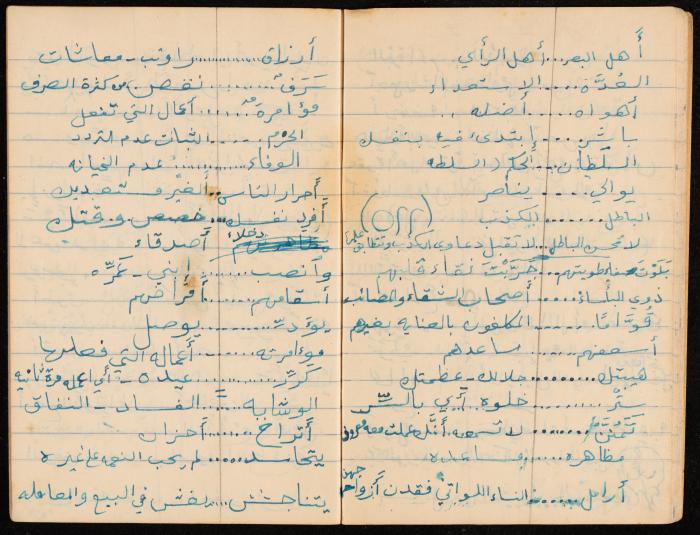 أهل البصر ... أهل الرأي
العُدَّة ..... الإستعداد
أهواه ..... أضله
باشر ..... إبتدىء فيه بنفسك
السلطان ... الحكم (السلطه
يوالي .... يناصر
الباطل ........ الكذب
لا تحسن الباطل .. لا تقبل دعاوى الكذب وتطابق عليه
بَلَوْتَ صفاء طويتهم ... جَرَّبْتَ نقاء قلبهم
ذوي البأساء ..... أصحاب الشقاء والمصائب
قوَّامًا ....... المكلفون بالعنايه بغيرهم
أسعفهم ...... ساعدهم
هيبتك ......... جلالك - عظمتك
سِرٌّ ......... خلوه أي بالسِّر
تَمُنَّنْ ...... لا تسمعه أنَّك عملت معه معروف
مظاهره ...... مساعده
أرامل ...... النساء اللواتي فقدن أزواجهن
أرزاق ............ رواتب - معاشات
سَرَفٌ .......... نقص من كثرة الصرف
مؤامرةٌ ....... أعمال التي تفعل
الحزم ....... الثبات عدم التردد
الوفاء ....... عدم الخيانه
أحرار الناس .. الغير مستعبدين
أفرد نفسك .. خصص وقتك
دخلاء أصدقاء
وانصب ........ إبني - عَمِّره
أسقامهم ..... أمراضهم
يؤدي ........ يوصل
مؤامرته ....... أعماله التي فعلها
كَرِّر ........ عيده - أي اعمله مرة ثانيه
الوشايه ..... الفساد - النفاق
أتراح ....... أحزان
يتحاسد ..... لم يحب النعمه على غيره
يتناجش .... يغش في البيع والمعامله